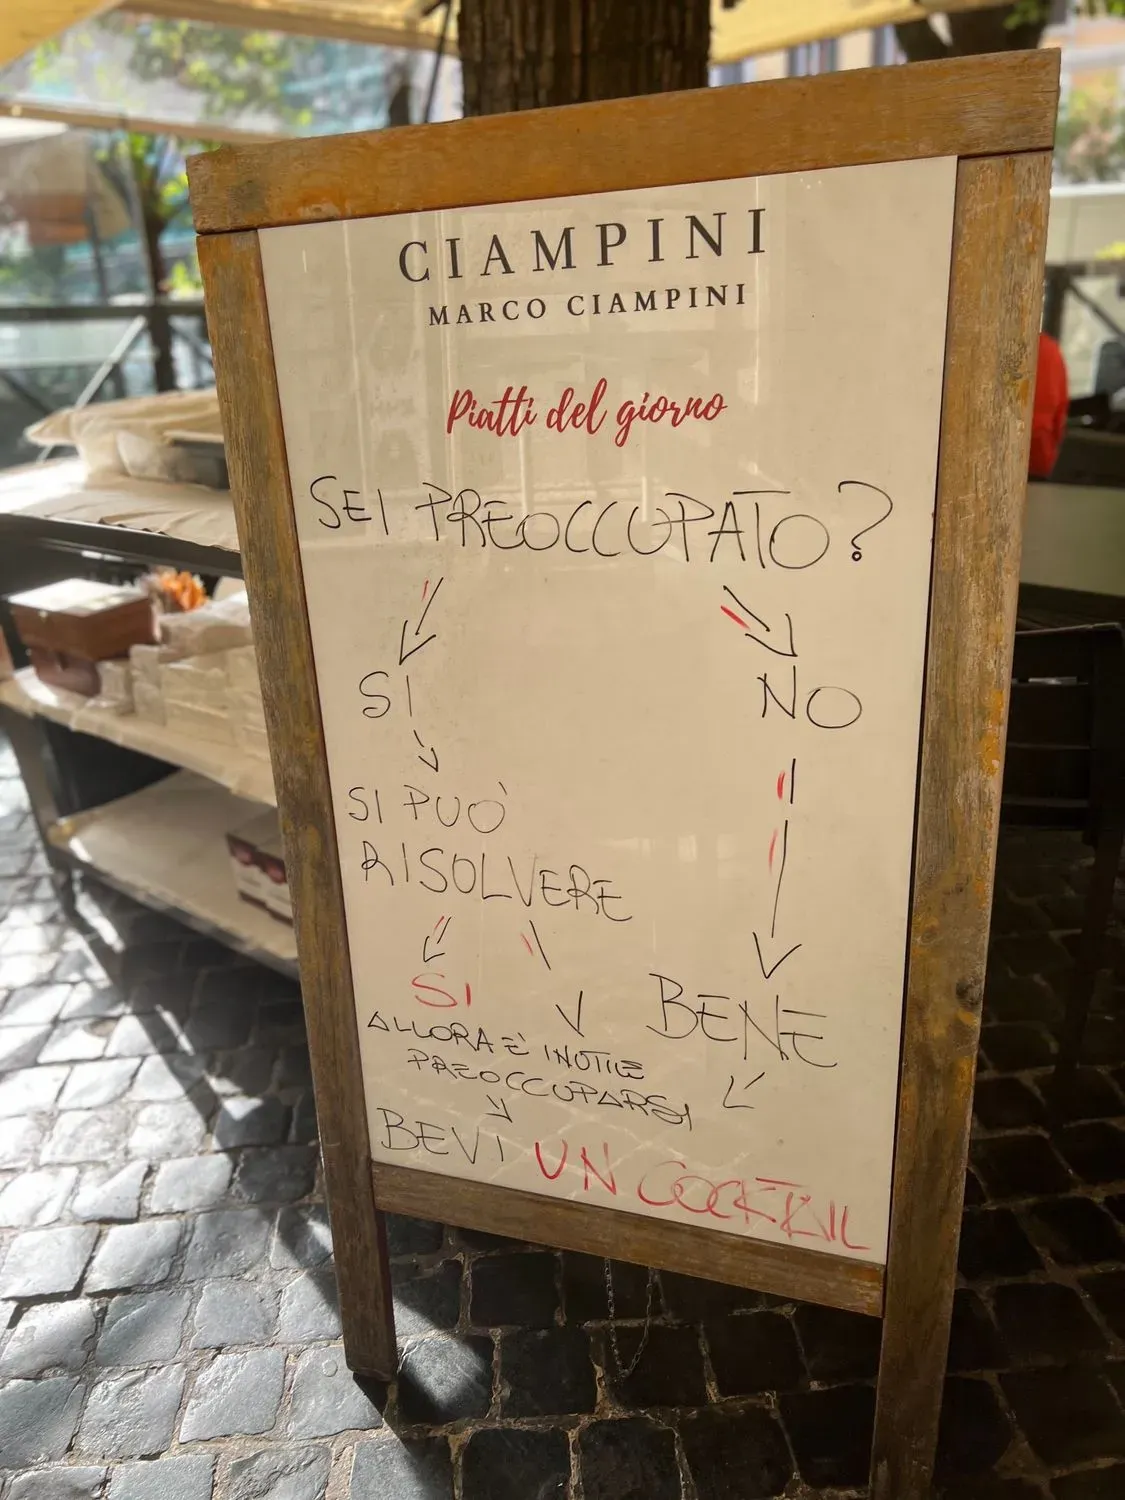 CIAMPINI
MARCO CIAMPINI
Piatti del giorno
SEI PREOCCUPATO?
SI
NO
SI PUO'
RISOLVERE
SI
BENE
ALLORA E' INUTILE
PREOCCUPARSI
BEVI UN COCKTAIL